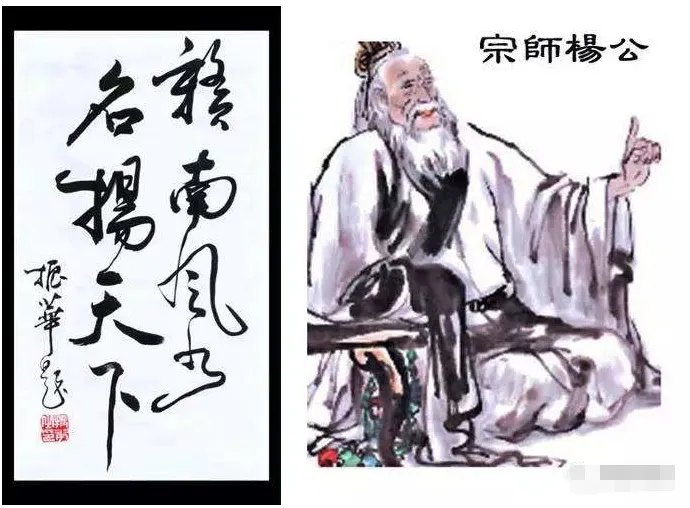 赣南风水
名揚天下
振華题
宗師楊公